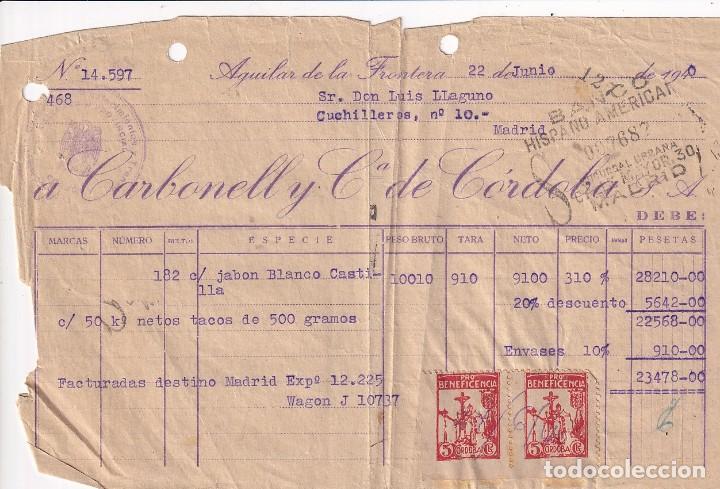 Nº 14.597
Aguilar de la Frontera 22 de Junio de 1940
468
Sr. Don Luis LLaguno
Cuchilleros, nº 10.-
Madrid
BANCO
HISPANO AMERICANO
SUCURSAL URBANA
MAYOR 30
MADRID
a Carbonell y Cª de Córdoba
DEBE:
MARCAS NÚMERO BULTOS ESPECIE PESO BRUTO TARA NETO PRECIO PESETAS
182 c/ jabon Blanco Casti- 10010 910 9100 310 % 28210-00
lla
20% descuento 5642-00
c/ 50 kº netos tacos de 500 gramos 22568-00
Envases 10% 910-00
23478-00
Facturadas destino Madrid Expº 12.225
Wagon J 10737
PRO
BENEFICENCIA
5 CORDOBA CTS
PRO
BENEFICENCIA
5 CORDOBA CTS
todocoleccion.net